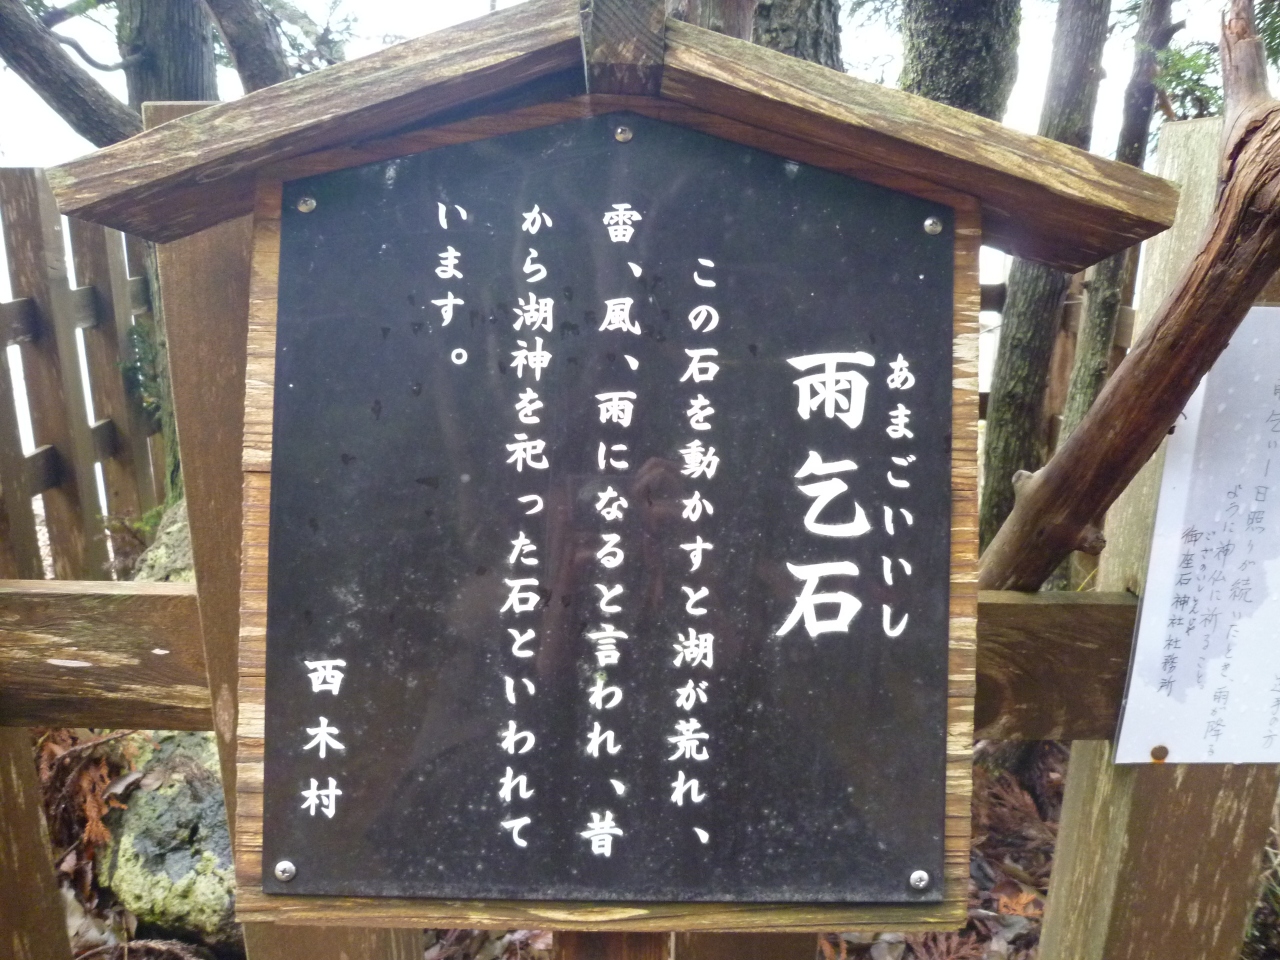 あまごいいし
雨乞石
この石を動かすと湖が荒れ、
雷、風、雨になると言われ、昔
から湖神を祀った石といわれて
います。
西木村
乞いー日照りが続いたとき、雨が降る
ように神仏に祈ること。
御座石神社社務所